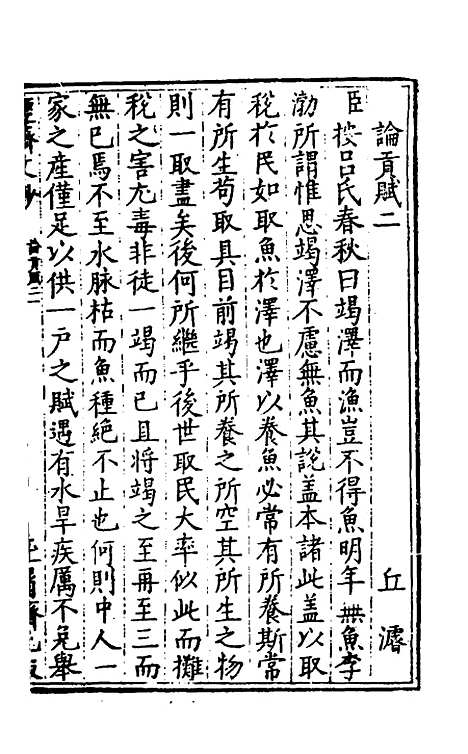 論貢賦二
丘濬
臣按呂氏春秋曰竭澤而漁豈不得魚明年無魚李
渤所謂惟思竭澤不慮無魚其說蓋本諸此蓋以取
稅於民如取魚於澤也澤以養魚必常有所養斯常
有所生苟取具目前竭其所養之所空其所生之物
則一取盡矣後何所繼乎後世取民大率似此而攤
稅之害尤毒非徒一竭而已且將竭之至再至三而
無已焉不至水脉枯而魚種絕不止也何則中人一
家之產僅足以供一戶之賦遇有水旱疾厲不免舉
論貢賦二